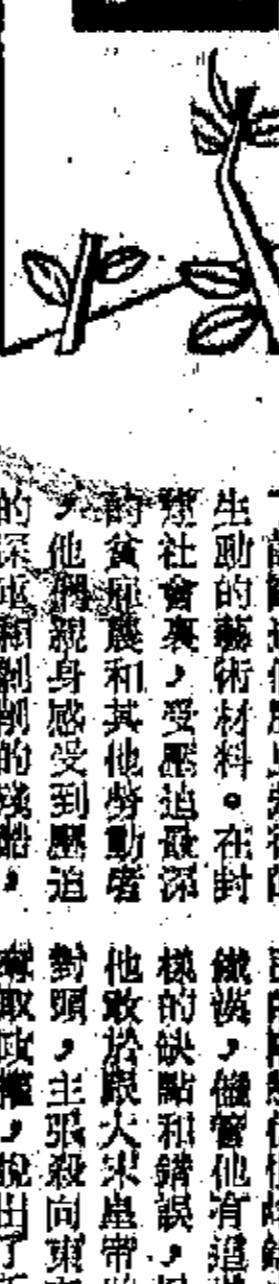 生動的藝術材料。在封
建社會裏，受壓迫最深
的貧雇農和其他勞動者
，他們親身感受到壓迫
的深重和剝削的殘酷，
鐵漢，儘管他有這
樣的缺點和錯誤，
他敢於跟大宋皇帝
對頭，主張殺向東
奪取政權，說出了